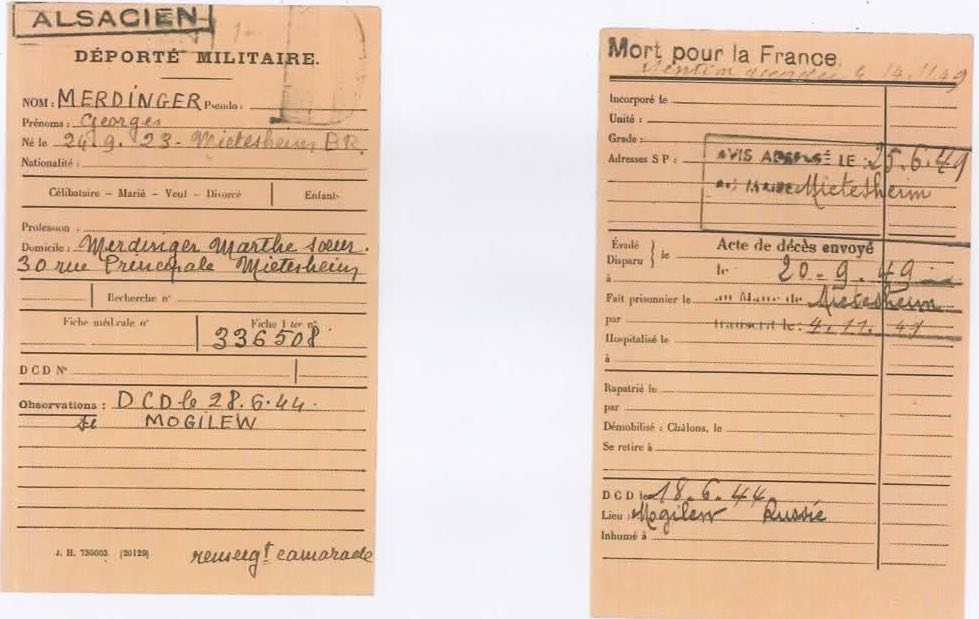 ALSACIEN
DÉPORTÉ MILITAIRE.
NOM : MERDINGER Pseudo :
Prénoms : Georges
Né le 24.9.23 - Mietesheim BR.
Nationalité :
Célibataire – Marié – Veuf – Divorcé Enfant-
Profession :
Domicile : Merdinger Marthe soeur.
30 rue Principale Mietesheim
Recherche n°
Fiche médicale n° Fiche 1 ter n°
336508
DCD N°
Observations : DCD le 28.6.44.
MOGILEW
J. H. 730003. (20129)
renseigt camarade
Mort pour la France
Mention
Incorporé le
Unité :
Grade :
Adresses S P : AVIS ADRESSÉ LE : 25.6.49
Mietesheim
Évadé
Disparu
le
Acte de décès envoyé
le 20-9-49
à
Fait prisonnier le au Maire de Mietesheim
par transcrit le : 4.11.49
Hospitalisé le
à
Rapatrié le
par
Démobilisé : Châlons, le
Se retire à
DCD le 18.6.44
Lieu : Mogilew Russie
Inhumé à